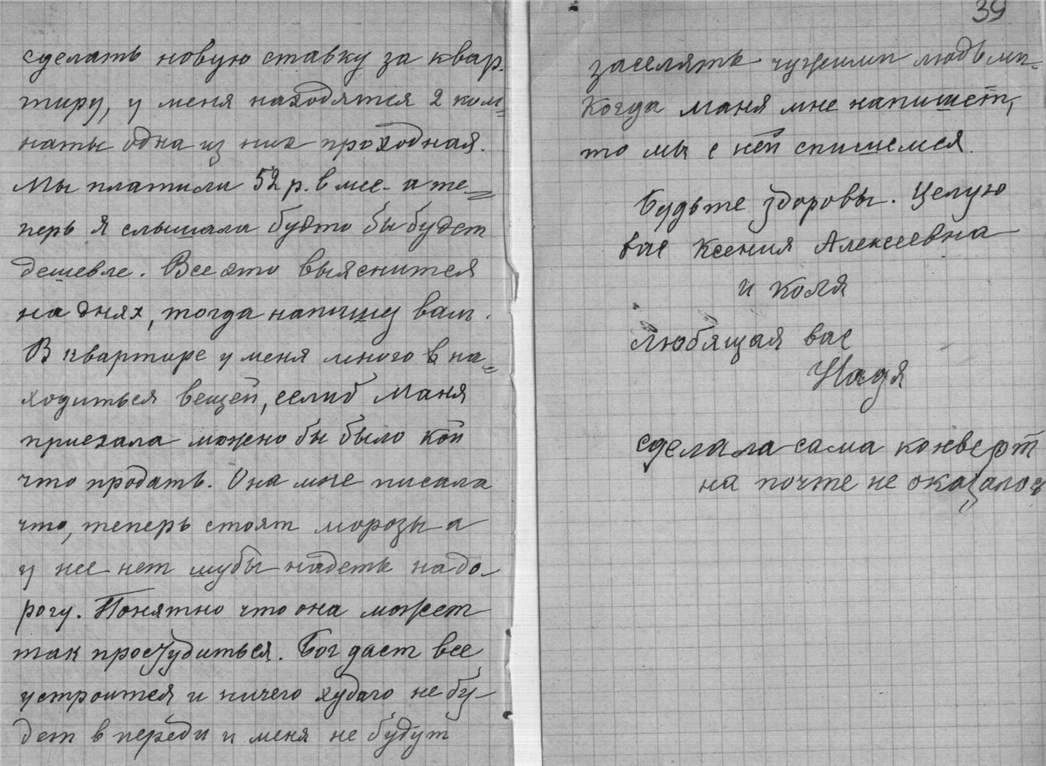 сделать новую ставку за квар-
тиру, у меня находятся 2 ком=
наты одна из них проходная.
Мы платили 52 р. в мес. а те=
перь я слышала будто бы будет
дешевле. Все это выяснится
на днях, тогда напишу вам.
В квартире у меня много в на=
ходиться вещей, еслиб Маня
приехала можно бы было кой
что продать. Она мне писала
что, теперь стоят морозы а
у нее нет шубы надеть на до-
рогу. Понятно что она может
так простудиться. Бог даст все
устроится и ничего худаго не бу-
дет в переди и меня не будут
39
заселять чужими людьми.
Когда Маня мне напишет,
то мы с ней спишемся.
Будьте здоровы. Целую
вас Ксения Алексеевна
и Коля
Любящая вас
Надя
сделала сама конверт
на почте не оказалось